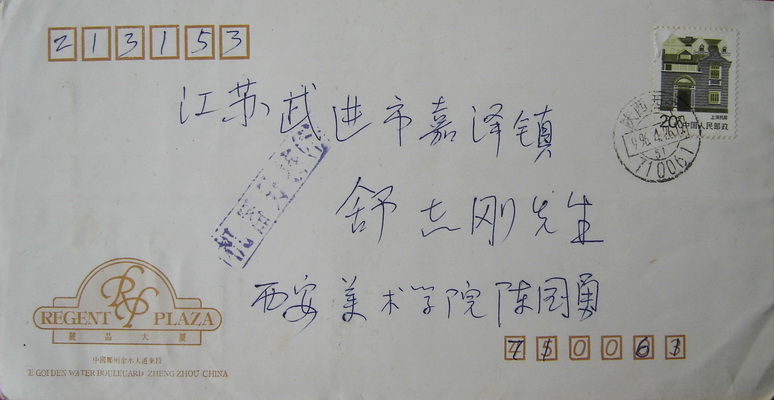 213153
上海民居
20分 中国人民邮政
陕西西安
1996.4.26
710061
江苏武进市嘉泽镇
舒志刚先生
西安美术学院陈国勇
REGENT RP PLAZA
麗晶大廈
中國鄭州金水大道東段
E GOLDEN WATER BOULEUARD ZHENG ZHOU CHINA
710061